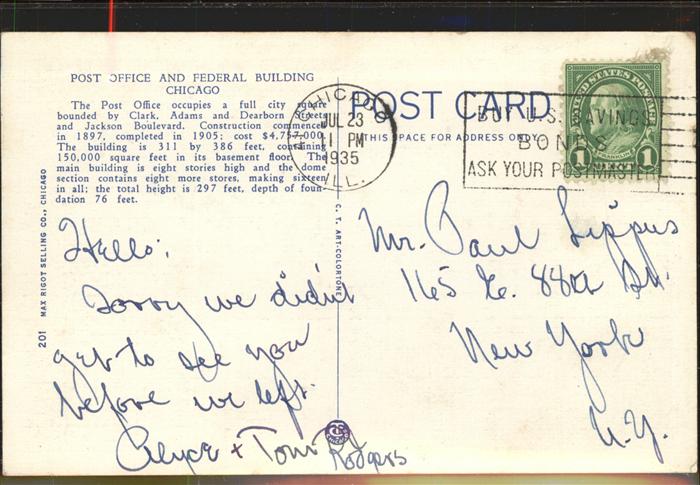 POST OFFICE AND FEDERAL BUILDING
CHICAGO
The Post Office occupies a full city square
bounded by Clark, Adams and Dearborn Streets
and Jackson Boulevard. Construction commenced
in 1897, completed in 1905; cost $4,757,000.
The building is 311 by 386 feet, containing
150,000 square feet in its basement floor. The
main building is eight stories high and the dome
section contains eight more stores, making sixteen
in all; the total height is 297 feet, depth of foun-
dation 76 feet.
201 MAX RIGOT SELLING CO., CHICAGO
Hello:
Sorry we didn't
get to see you
before we left.
Alyce + Tom Rodgers
C. T. ART-COLORTONE
POST CARD
THIS SPACE FOR ADDRESS ONLY
CHICAGO
JUL 23
11 PM
1935
ILL.
BUY U.S. SAVINGS
BONDS
ASK YOUR POSTMASTER
UNITED STATES POSTAGE
FRANKLIN
1 CENT 1
Mr. Paul Lippus
165 E. 88th St.
New York
N.Y.